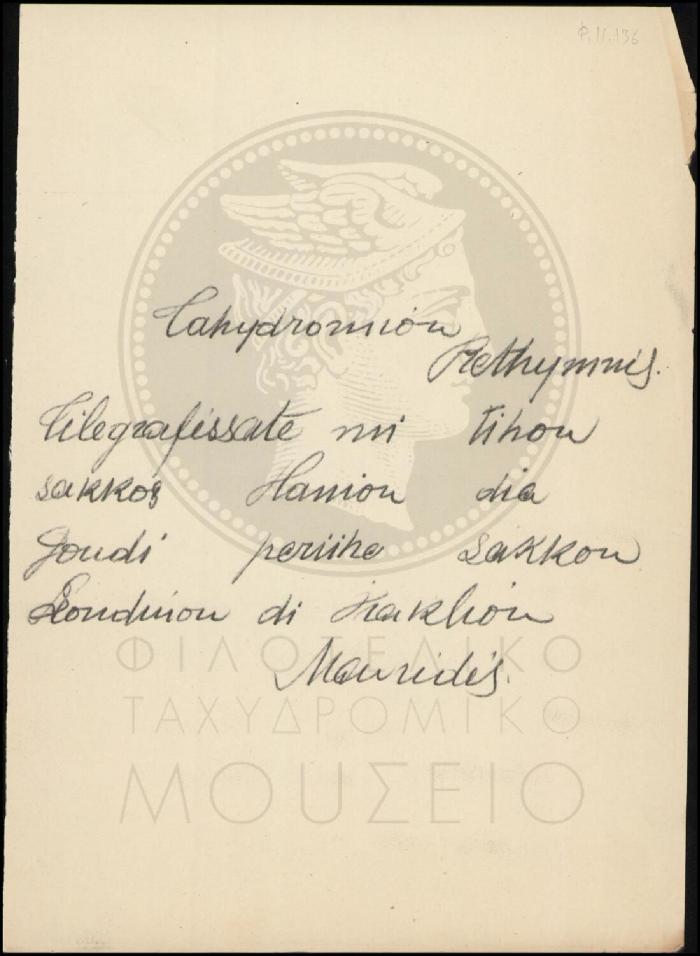 Φ.11.136
Tahydromion
Rethymnis.
Tilegrafissate mi tihon
sakkos Hanion dia
Joudi periihe sakkon
Londinon di Iraklion
Mavridis.
ΦΙΛΟΤΕΛΙΚΟ
ΤΑΧΥΔΡΟΜΙΚΟ
ΜΟΥΣΕΙΟ